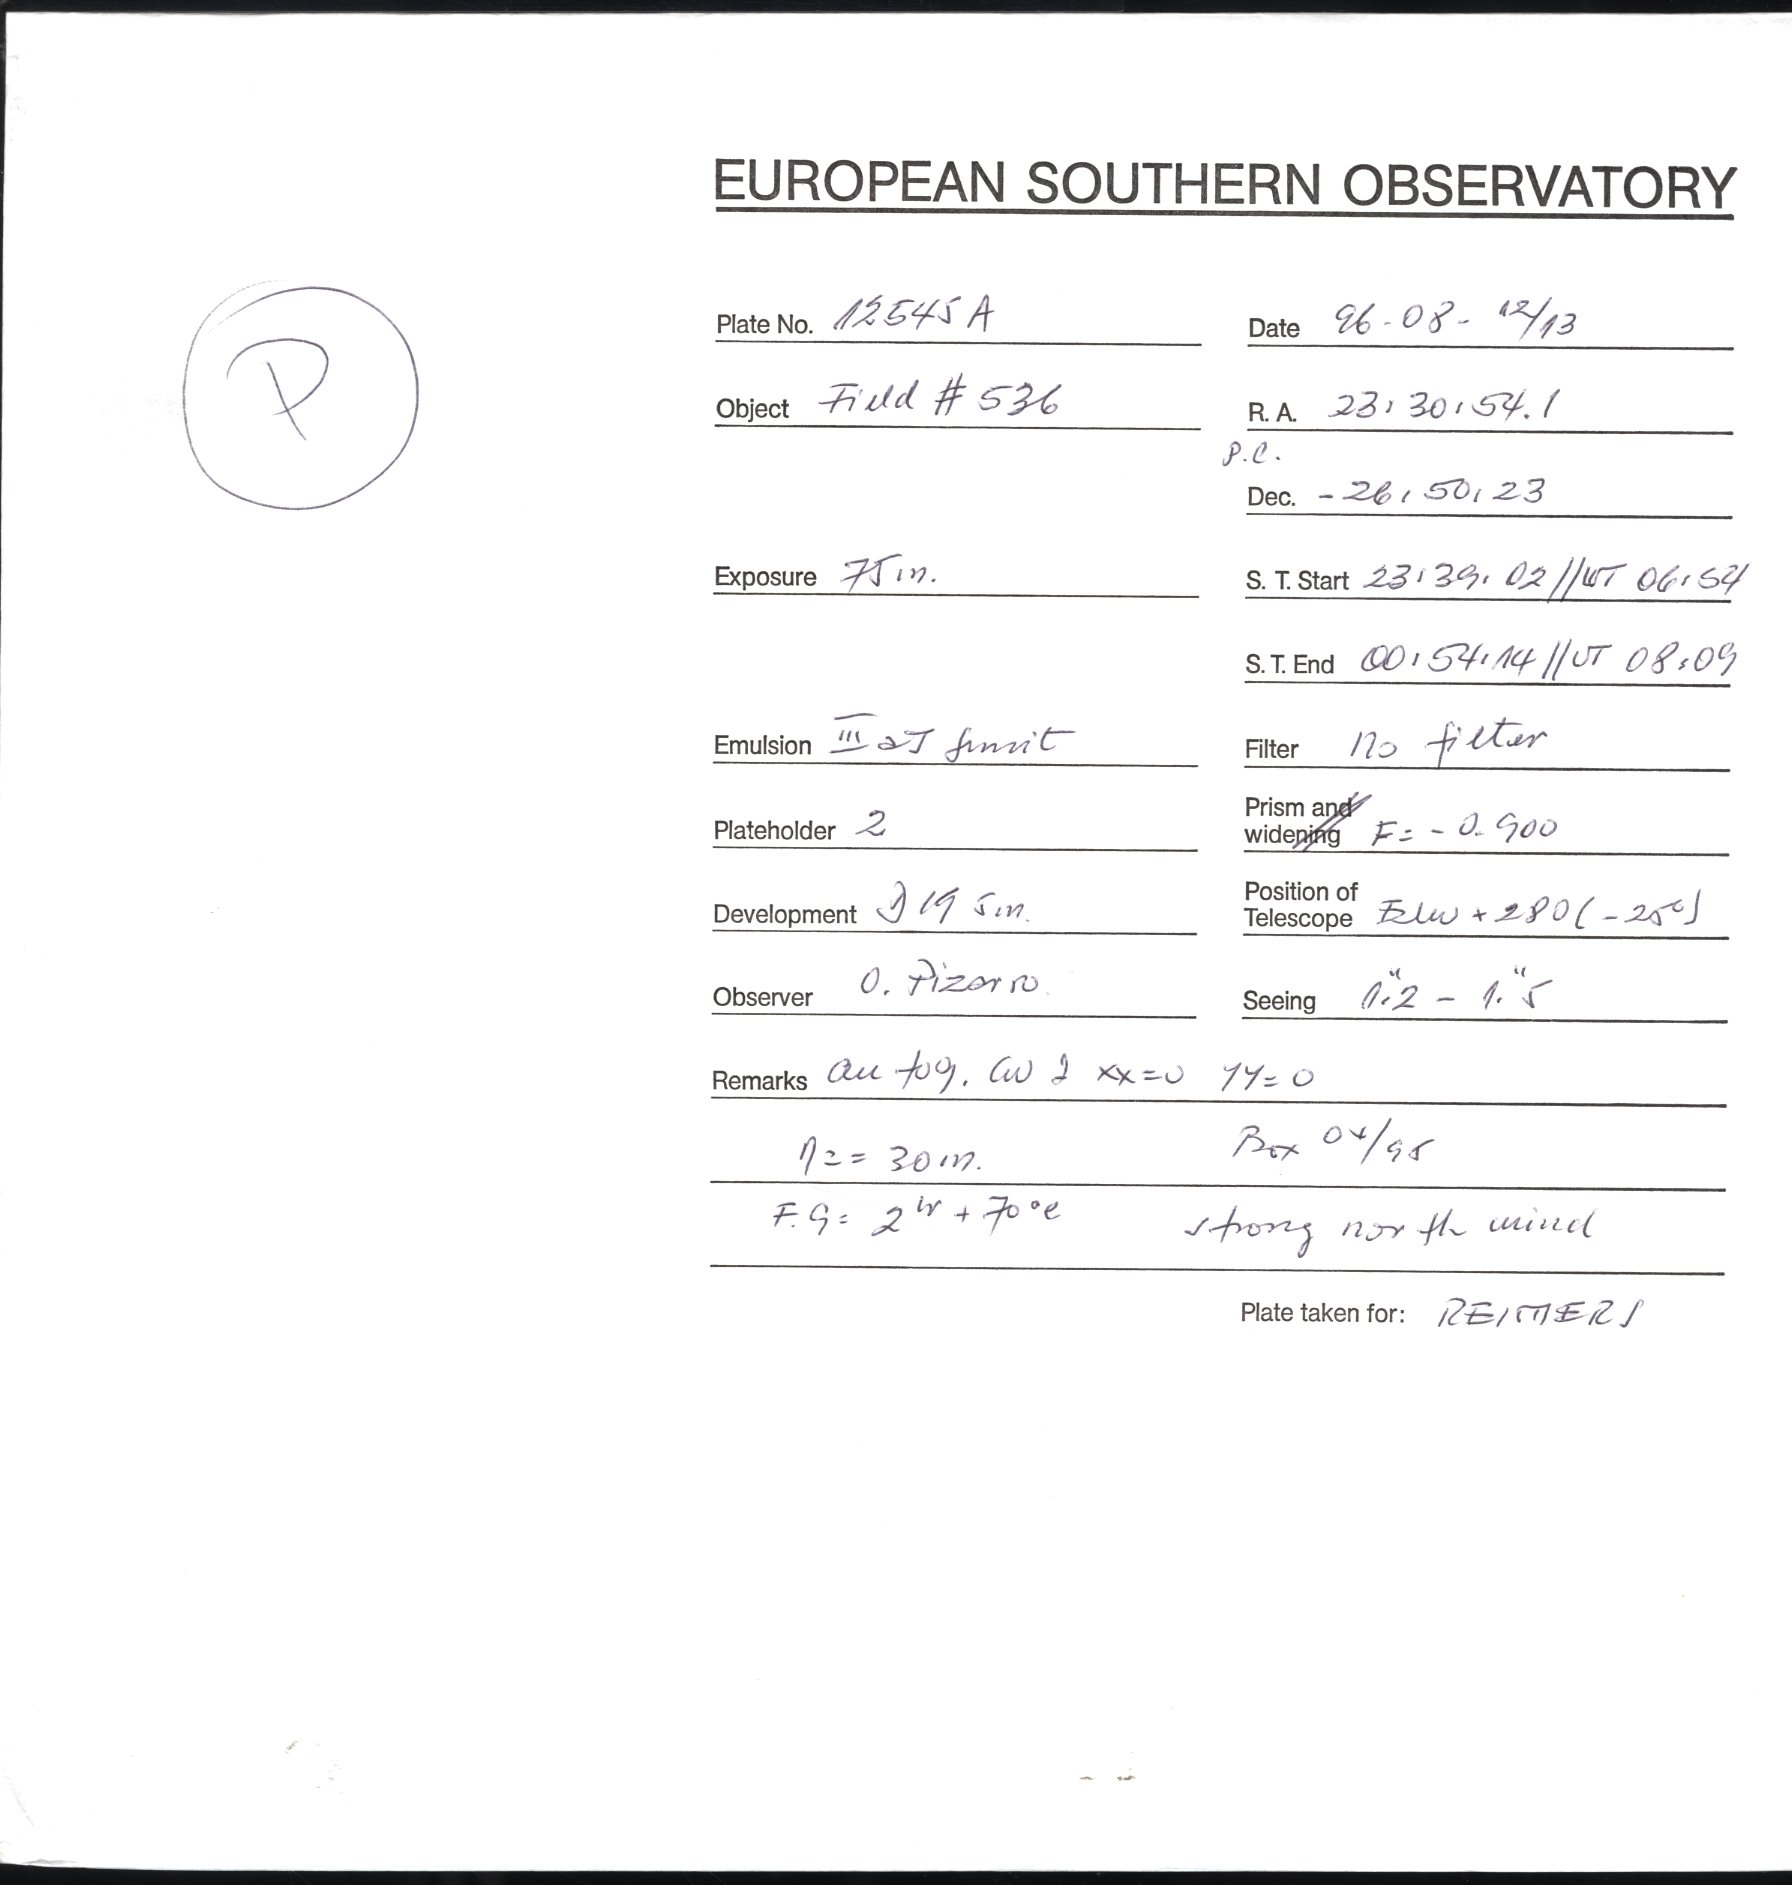 EUROPEAN SOUTHERN OBSERVATORY
P
Plate No. 12545 A
Date 96-08-12/13
Object Field # 536
R. A. 23:30:54.1
P.C.
Dec. -26:50:23
Exposure 75m.
S. T. Start 23:39:02 // UT 06:54
S. T. End 00:54:14 // UT 08:09
Emulsion III aJ
Filter no filter
Plateholder 2
Prism and widening F = -0.900
Development D 19 5m.
Position of Telescope +280 (-250)
Observer O. Pizarro
Seeing 1."2 - 1."5
Remarks xx=0 yy=0
= 30m. Box 04/95
F.G = + 70°C strong north wind
Plate taken for: REIMERS